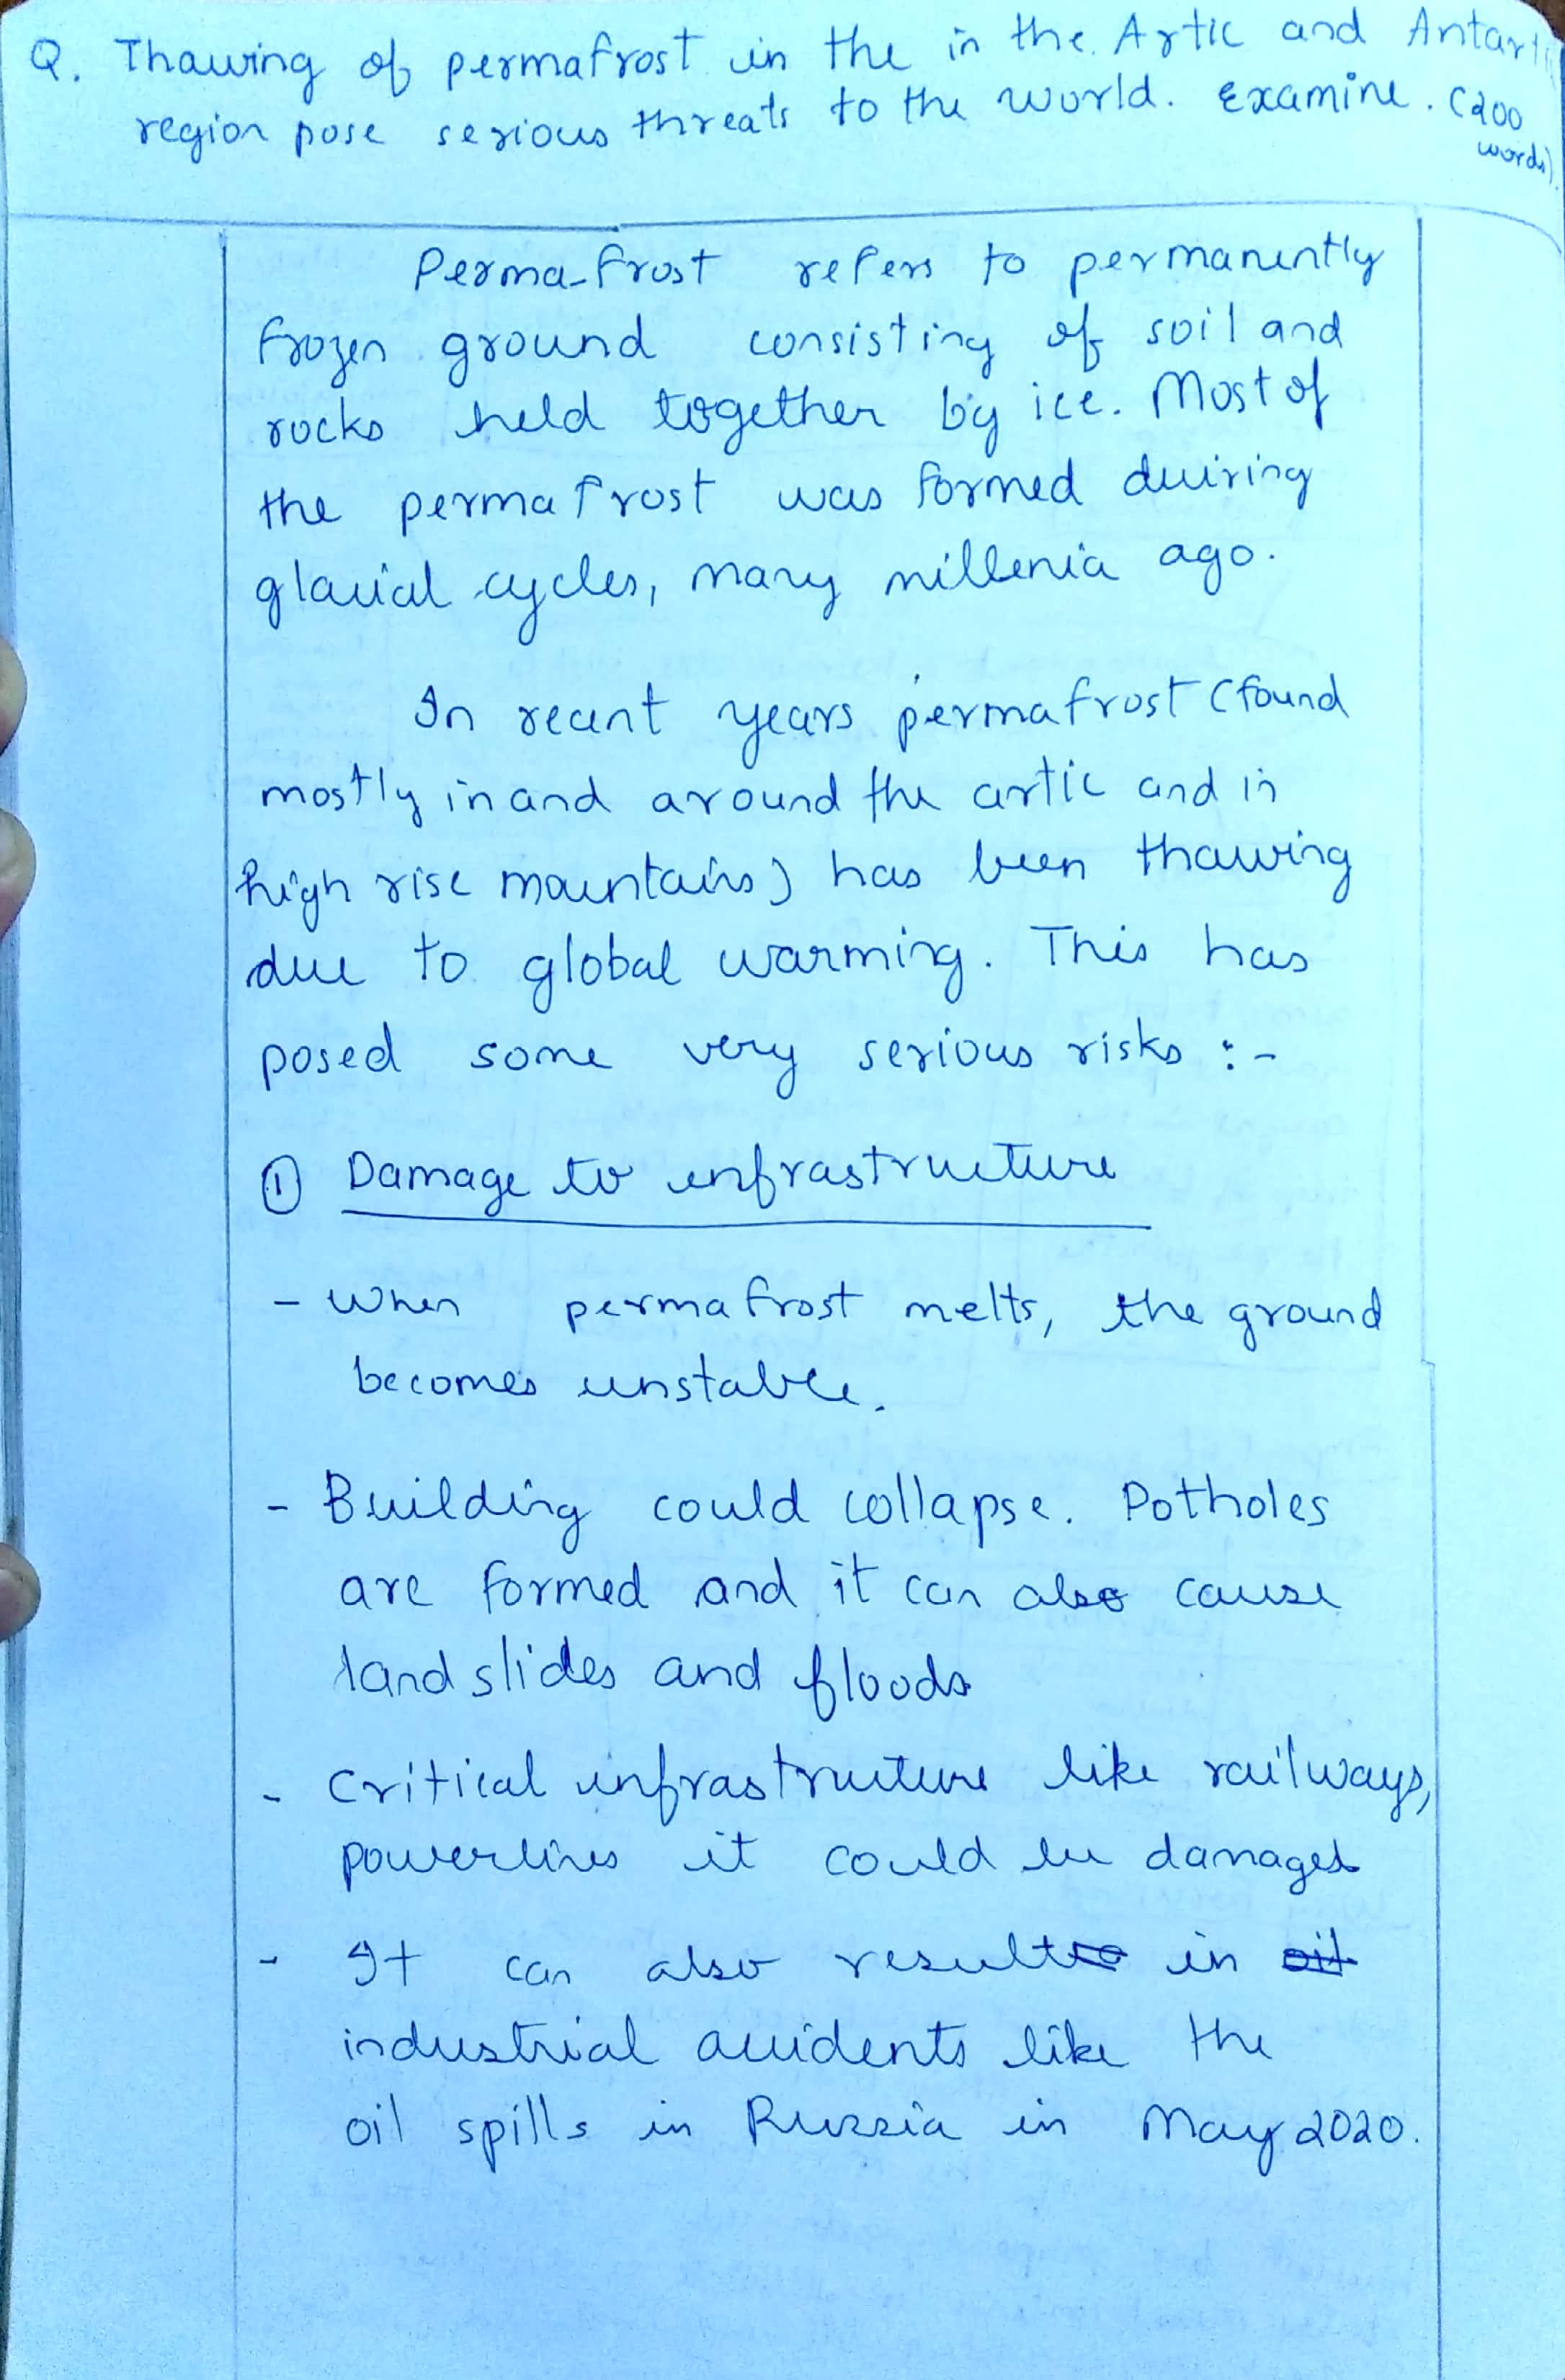 Q. Thawing of permafrost in the in the Artic and Antarti
region pose serious threats to the world. Examine. (200
words)
Perma-frost refers to permanently
frozen ground consisting of soil and
rocks held together by ice. Most of
the permafrost was formed during
glacial cycles, many millenia ago.
In recent years permafrost (found
mostly in and around the artic and in
high rise mountains) has been thawing
due to global warming. This has
posed some very serious risks :-
① Damage to infrastructure
- When permafrost melts, the ground
becomes unstable.
- Building could collapse. Potholes
are formed and it can also cause
landslides and floods
- Critical infrastructure like railways,
powerlines it could be damaged
- It can also result in oil
industrial accidents like the
oil spills in Russia in May 2020.